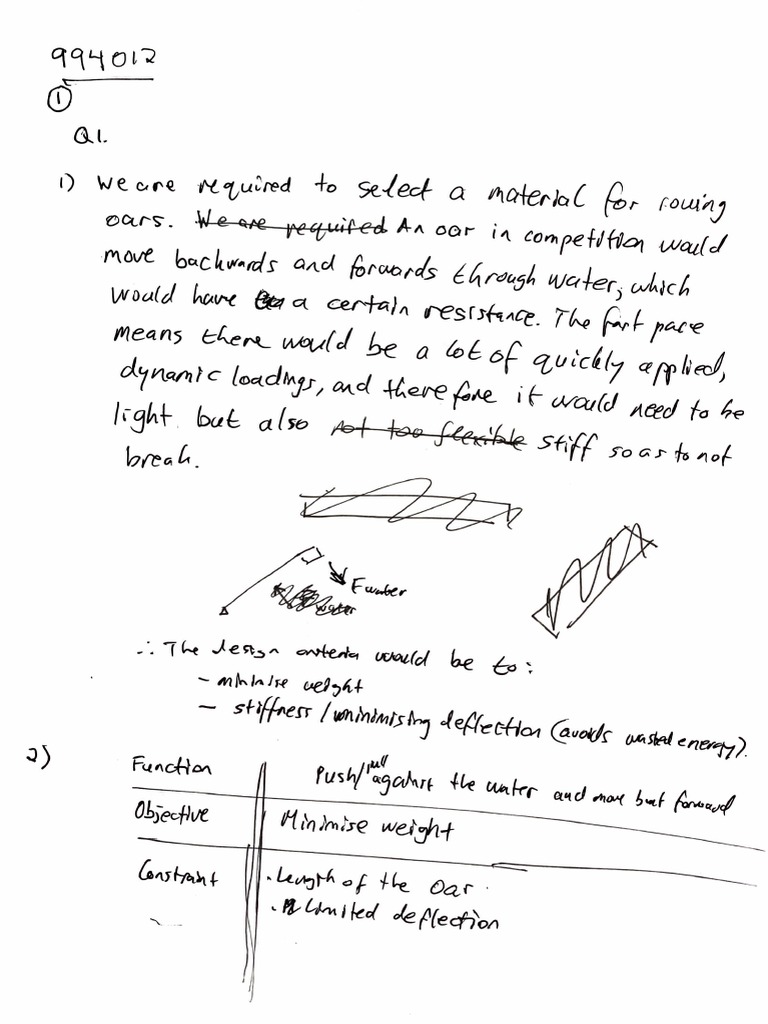 994012
①
Q1.
1) We are required to select a material for rowing
oars. We are required An oar in competition would
move backwards and forwards through water, which
would have a certain resistance. The fast pace
means there would be a lot of quickly applied,
dynamic loadings, and therefore it would need to be
light but also not too flexible stiff so as to not
break.
Fwater
water
∴ The design criteria would be to:
- minimise weight
- stiffness / minimising deflection (avoids wasted energy).
2)
Function Push/pull against the water and move boat forward
Objective Minimise weight
Constraint . Length of the oar.
. Limited deflection